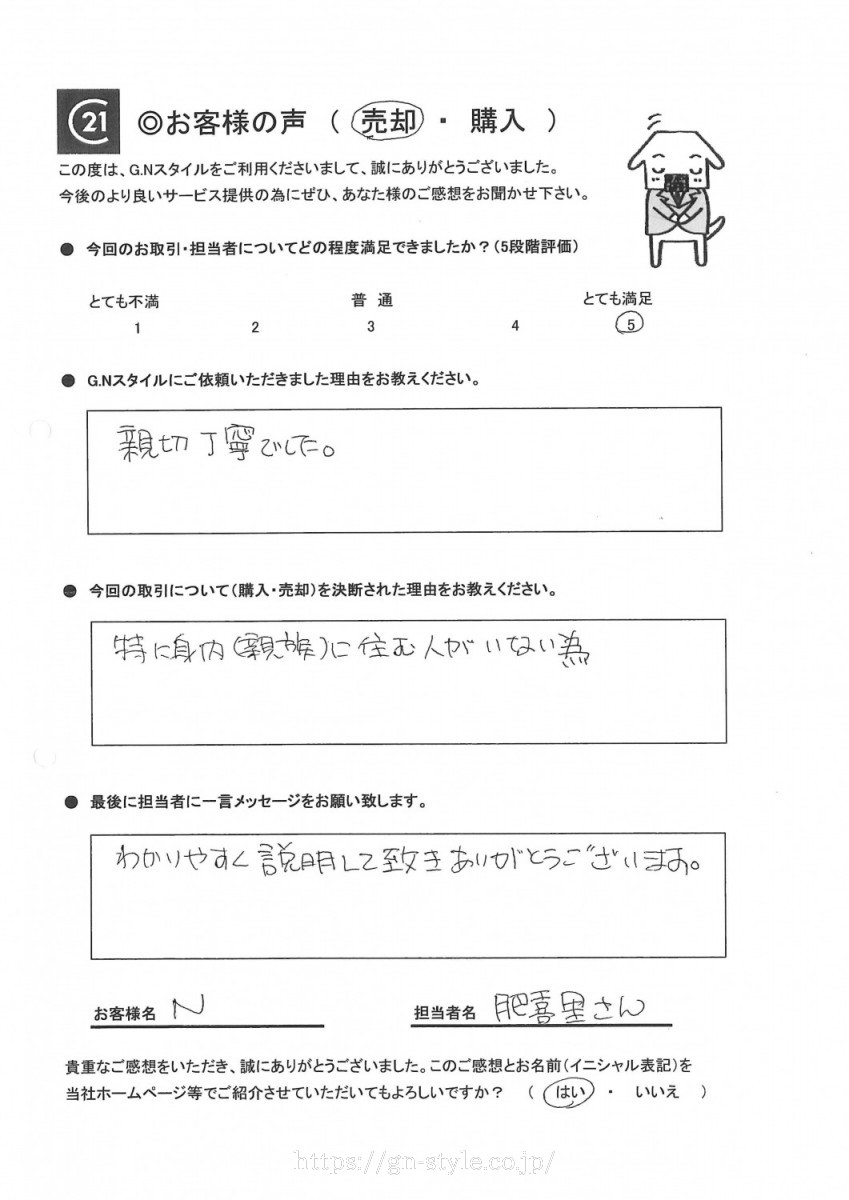 C21 ◎お客様の声 ( 売却 ・ 購入 )
この度は、G.Nスタイルをご利用くださいまして、誠にありがとうございました。
今後のより良いサービス提供の為にぜひ、あなた様のご感想をお聞かせ下さい。
● 今回のお取引・担当者についてどの程度満足できましたか?(5段階評価)
とても不満 普 通 とても満足
1 2 3 4 5
● G.Nスタイルにご依頼いただきました理由をお教えください。
親切丁寧でした。
● 今回の取引について(購入・売却)を決断された理由をお教えください。
特に身内(親族)に住む人がいない為
● 最後に担当者に一言メッセージをお願い致します。
わかりやすく説明して致きありがとうございます。
お客様名 N 担当者名 肥喜里さん
貴重なご感想をいただき、誠にありがとうございました。このご感想とお名前(イニシャル表記)を
当社ホームページ等でご紹介させていただいてもよろしいですか? ( はい ・ いいえ )
https://gn-style.co.jp/